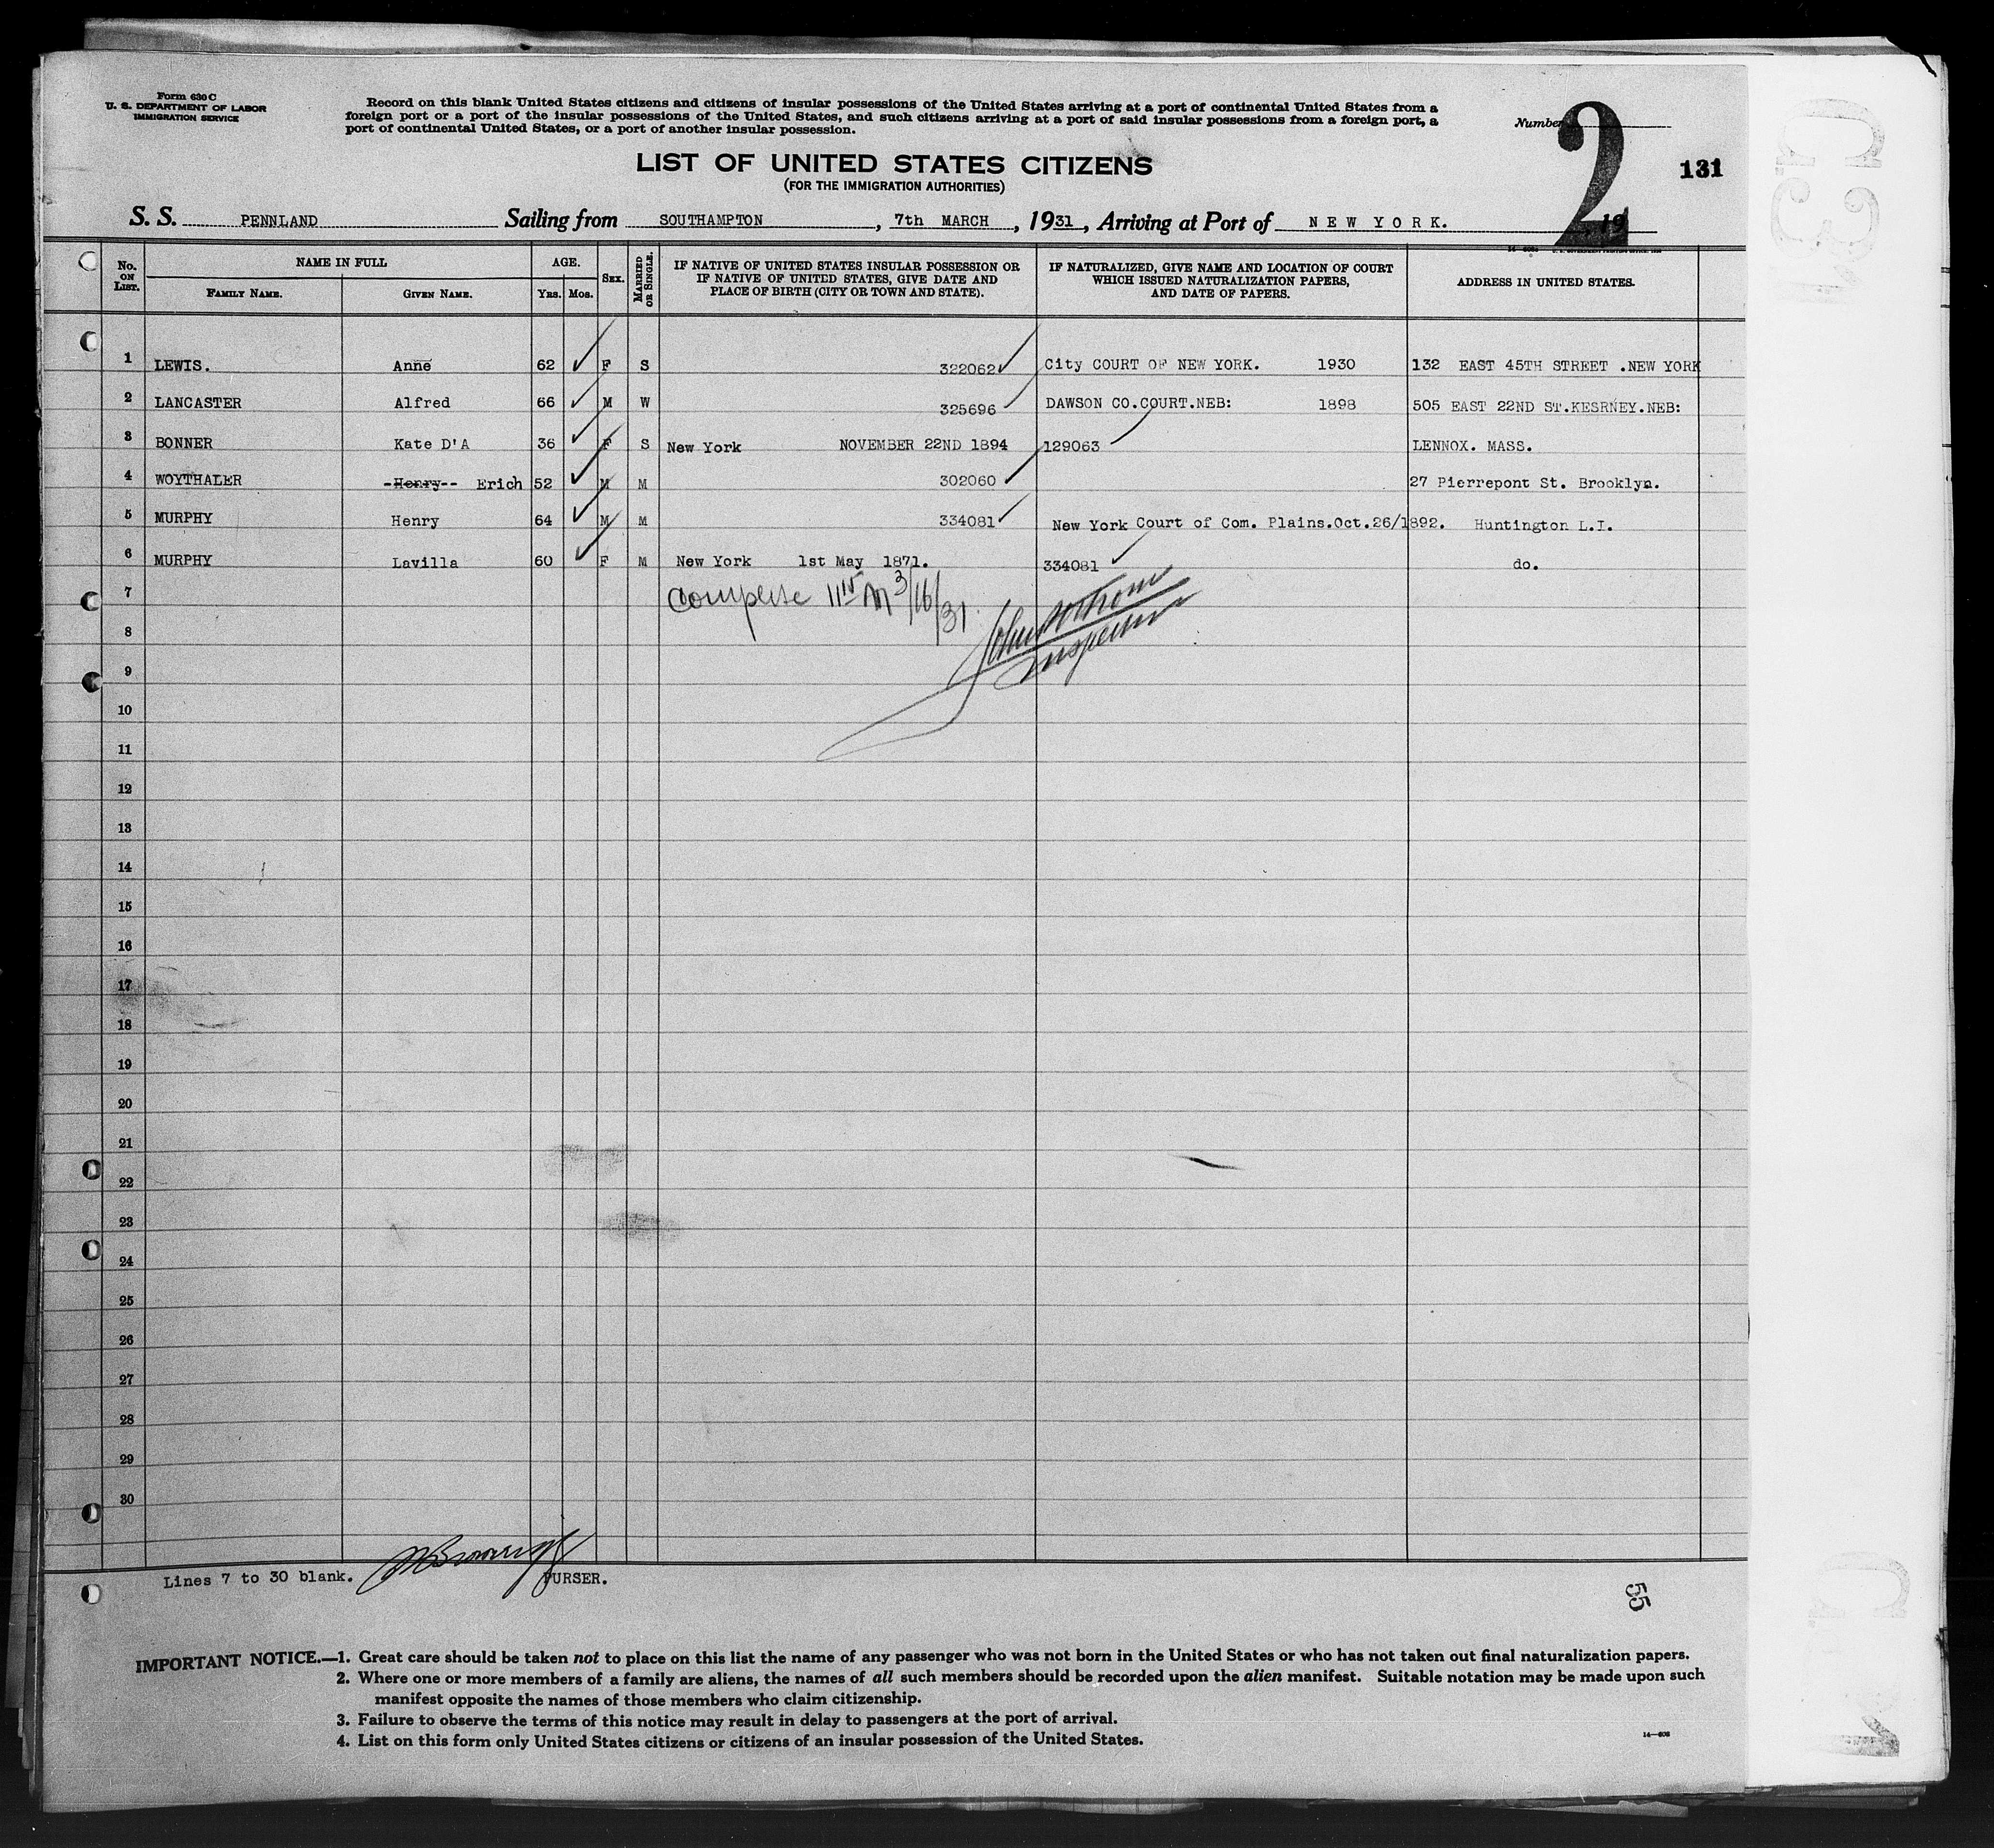 Form 630 C
U. S. DEPARTMENT OF LABOR
IMMIGRATION SERVICE
Record on this blank United States citizens and citizens of insular possessions of the United States arriving at a port of continental United States from a
foreign port or a port of the insular possessions of the United States, and such citizens arriving at a port of said insular possessions from a foreign port, a
port of continental United States, or a port of another insular possession.
Number 2
131
LIST OF UNITED STATES CITIZENS
(FOR THE IMMIGRATION AUTHORITIES)
S. S. PENNLAND Sailing from SOUTHAMPTON, 7th MARCH, 1931, Arriving at Port of NEW YORK. , 19
No. ON LIST. NAME IN FULL AGE. SEX. MARRIED OR SINGLE. IF NATIVE OF UNITED STATES INSULAR POSSESSION OR IF NATIVE OF UNITED STATES, GIVE DATE AND PLACE OF BIRTH (CITY OR TOWN AND STATE). IF NATURALIZED, GIVE NAME AND LOCATION OF COURT WHICH ISSUED NATURALIZATION PAPERS, AND DATE OF PAPERS. ADDRESS IN UNITED STATES.
FAMILY NAME. GIVEN NAME. YRS. MOS.
1 LEWIS. Anne 62 F S 322062 City COURT OF NEW YORK. 1930 132 EAST 45TH STREET .NEW YORK
2 LANCASTER Alfred 66 M W 325696 DAWSON CO.COURT.NEB: 1898 505 EAST 22ND ST.KESRNEY.NEB:
3 BONNER Kate D'A 36 F S New York NOVEMBER 22ND 1894 129063 LENNOX. MASS.
4 WOYTHALER -Henry-- Erich 52 M M 302060 27 Pierrepont St. Brooklyn.
5 MURPHY Henry 64 M M 334081 New York Court of Com. Plains.Oct.26/1892. Huntington L.I.
6 MURPHY Lavilla 60 F M New York 1st May 1871. 334081 do.
7 Complete 11 15 M 3/16/31
8
Inspector
9
10
11
12
13
14
15
16
17
18
19
20
21
22
23
24
25
26
27
28
29
30
Lines 7 to 30 blank. PURSER.
55
IMPORTANT NOTICE.—1. Great care should be taken not to place on this list the name of any passenger who was not born in the United States or who has not taken out final naturalization papers.
2. Where one or more members of a family are aliens, the names of all such members should be recorded upon the alien manifest. Suitable notation may be made upon such
manifest opposite the names of those members who claim citizenship.
3. Failure to observe the terms of this notice may result in delay to passengers at the port of arrival.
4. List on this form only United States citizens or citizens of an insular possession of the United States.
14—608